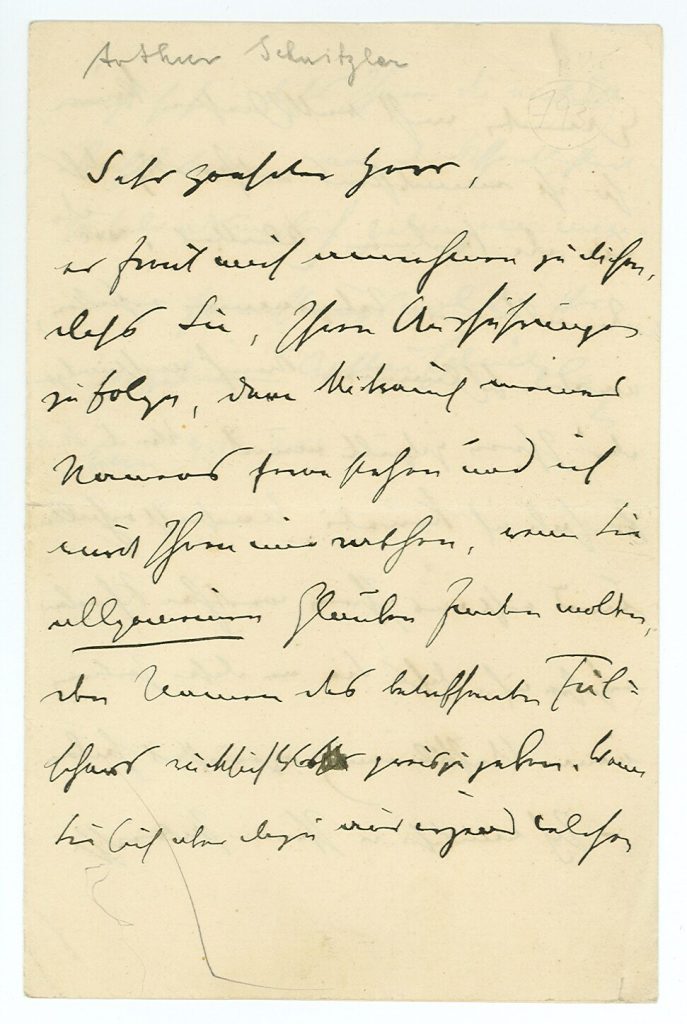 Arthur Schnitzler
Sehr geehrter Herr,
es freut mich annehmen zu dürfen,
dass Sie, Ihren Ausführungen
zufolge, dem Misbrauch meines
Namens fern stehen und ich
würde Ihnen nur rathen, wenn Sie
allgemeinen Glauben finden wollen,
den Namen des betreffenden Fäl=
schers rücksichtslos preiszugeben. Wenn
Sie sich aber dazu aus irgend welchen